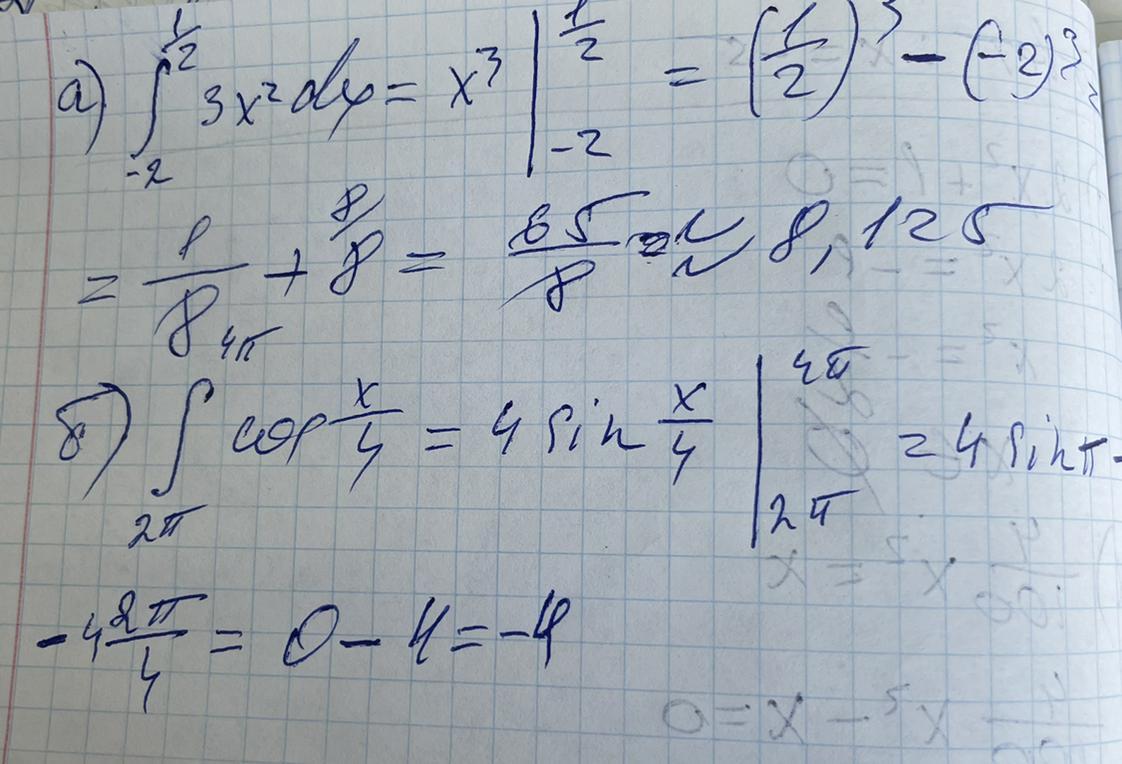 а) ∫_{-2}^{1/2} 3x² dx = x³ |_{-2}^{1/2} = (1/2)³ - (-2)³ =
= 1/8 + 8/8 = 65/8 ≈ 8,125
б) ∫_{2π}^{4π} cos x/4 = 4 sin x/4 |_{2π}^{4π} = 4 sin π -
- 4 2π/4 = 0 - 4 = -4